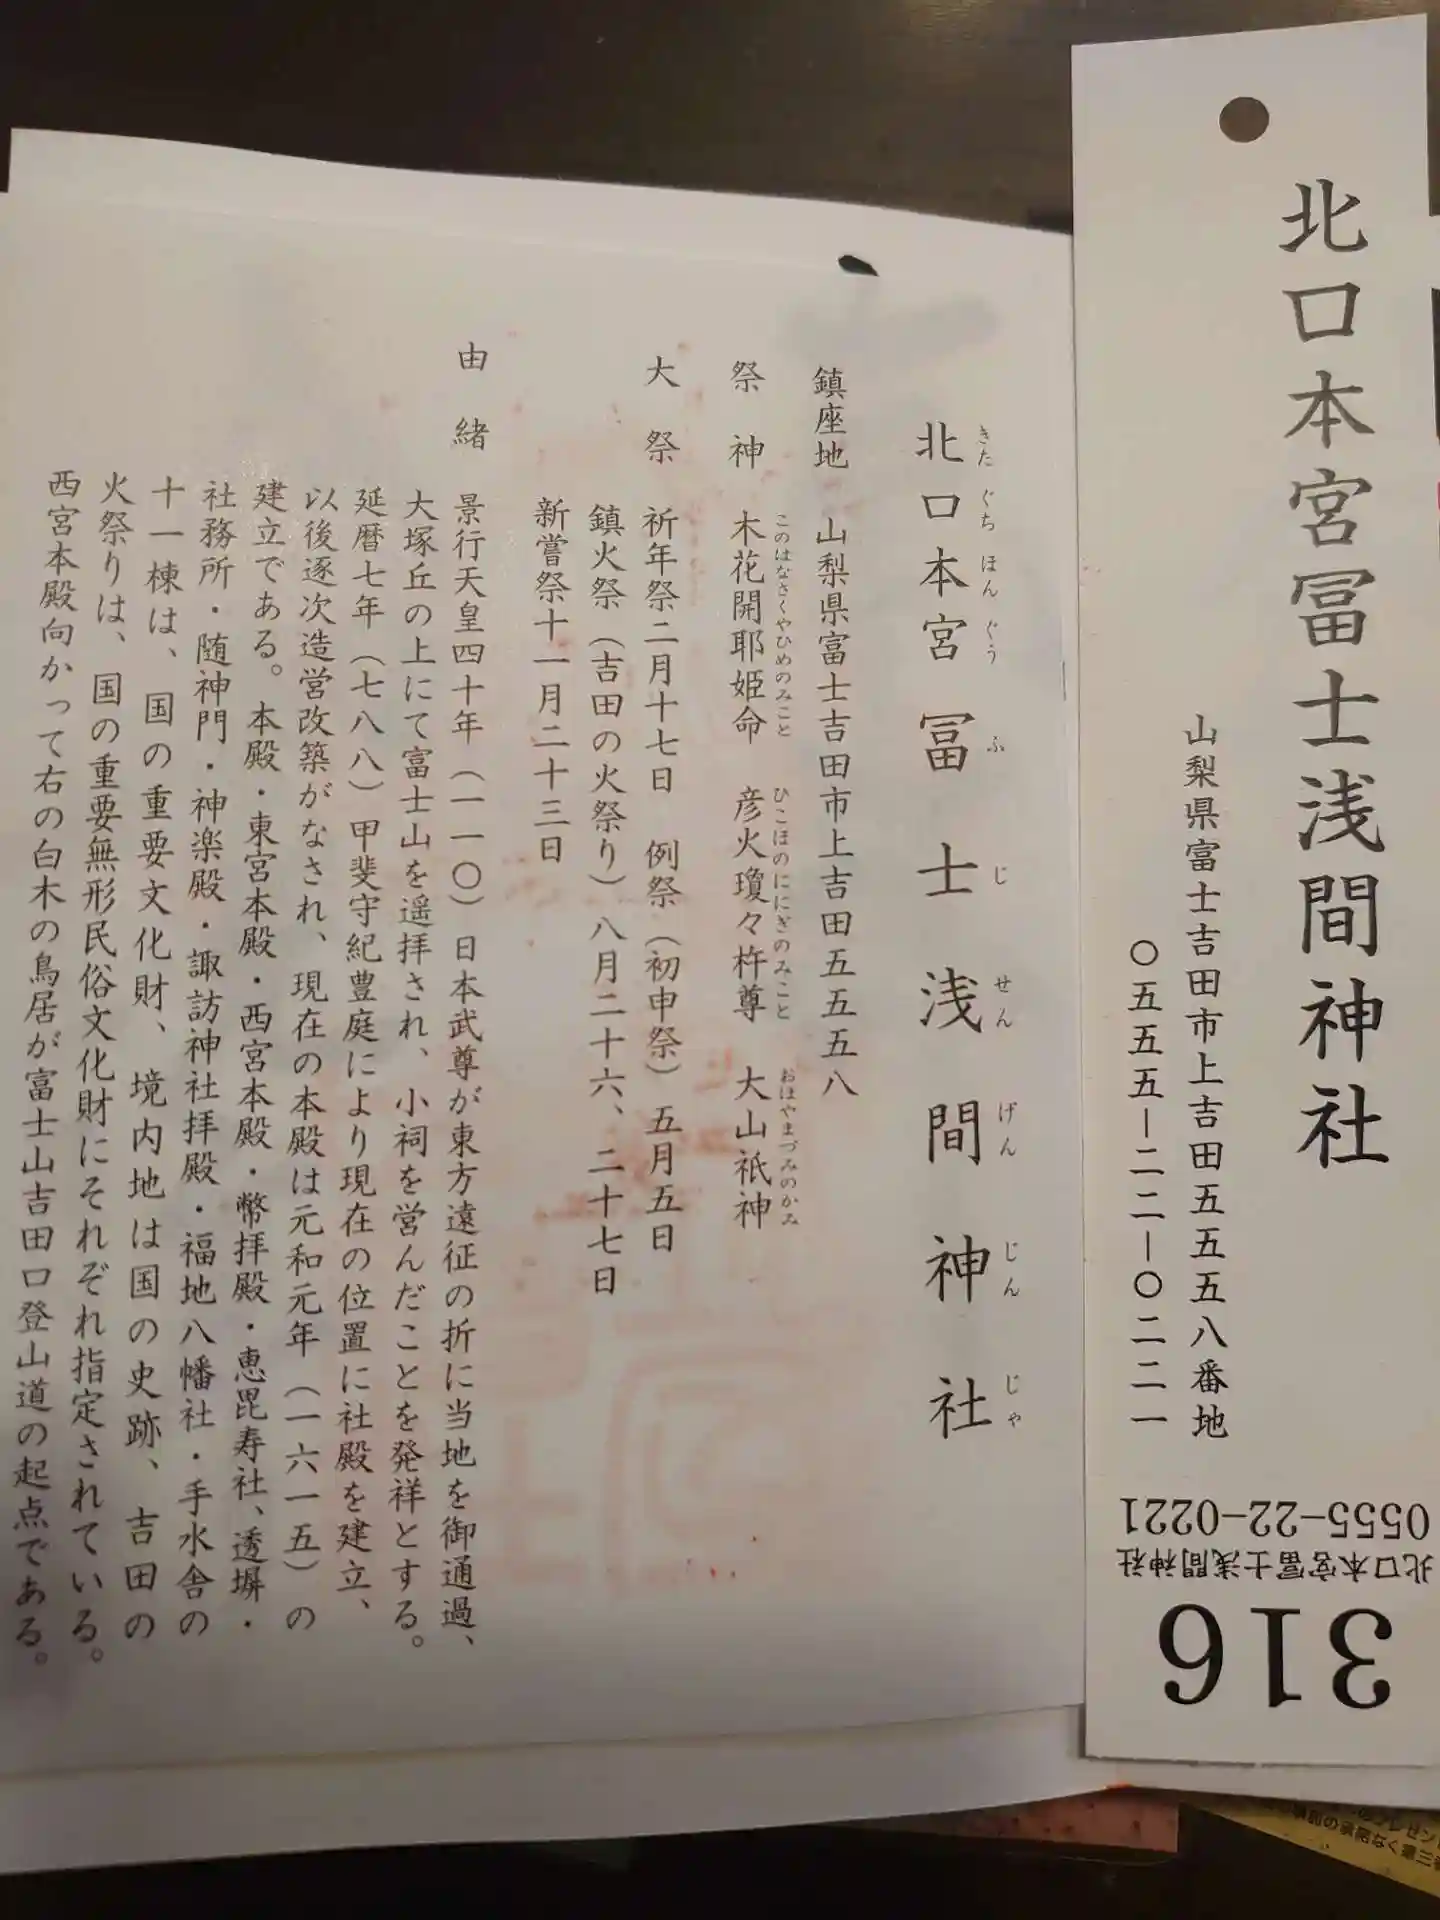 北口本宮冨士浅間神社
山梨県富士吉田市上吉田五五五八番地
〇五五五ー二二ー〇二二一
0555-22-0221
北口本宮冨士浅間神社
316
北口本宮冨士浅間神社
きたぐちほんぐうふじせんげんじんじゃ
鎮座地 山梨県富士吉田市上吉田五五五八
祭神 木花開耶姫命 彦火瓊々杵尊 大山祇神
このはなさくやひめのみこと ひこほのににぎのみこと おほやまづみのかみ
大祭 祈年祭二月十七日 例祭(初申祭) 五月五日
鎮火祭(吉田の火祭り)八月二十六、二十七日
新嘗祭十一月二十三日
由緒 景行天皇四十年(一一〇)日本武尊が東方遠征の折に当地を御通過、
大塚丘の上にて富士山を遥拝され、小祠を営んだことを発祥とする。
延暦七年(七八八)甲斐守紀豊庭により現在の位置に社殿を建立、
以後逐次造営改築がなされ、現在の本殿は元和元年(一六一五)の
建立である。本殿・東宮本殿・西宮本殿・幣拝殿・恵毘寿社、透塀・
社務所・随神門・神楽殿・諏訪神社拝殿・福地八幡社・手水舎の
十一棟は、国の重要文化財、境内地は国の史跡、吉田の
火祭りは、国の重要無形民俗文化財にそれぞれ指定されている。
西宮本殿向かって右の白木の鳥居が富士山吉田口登山道の起点である。